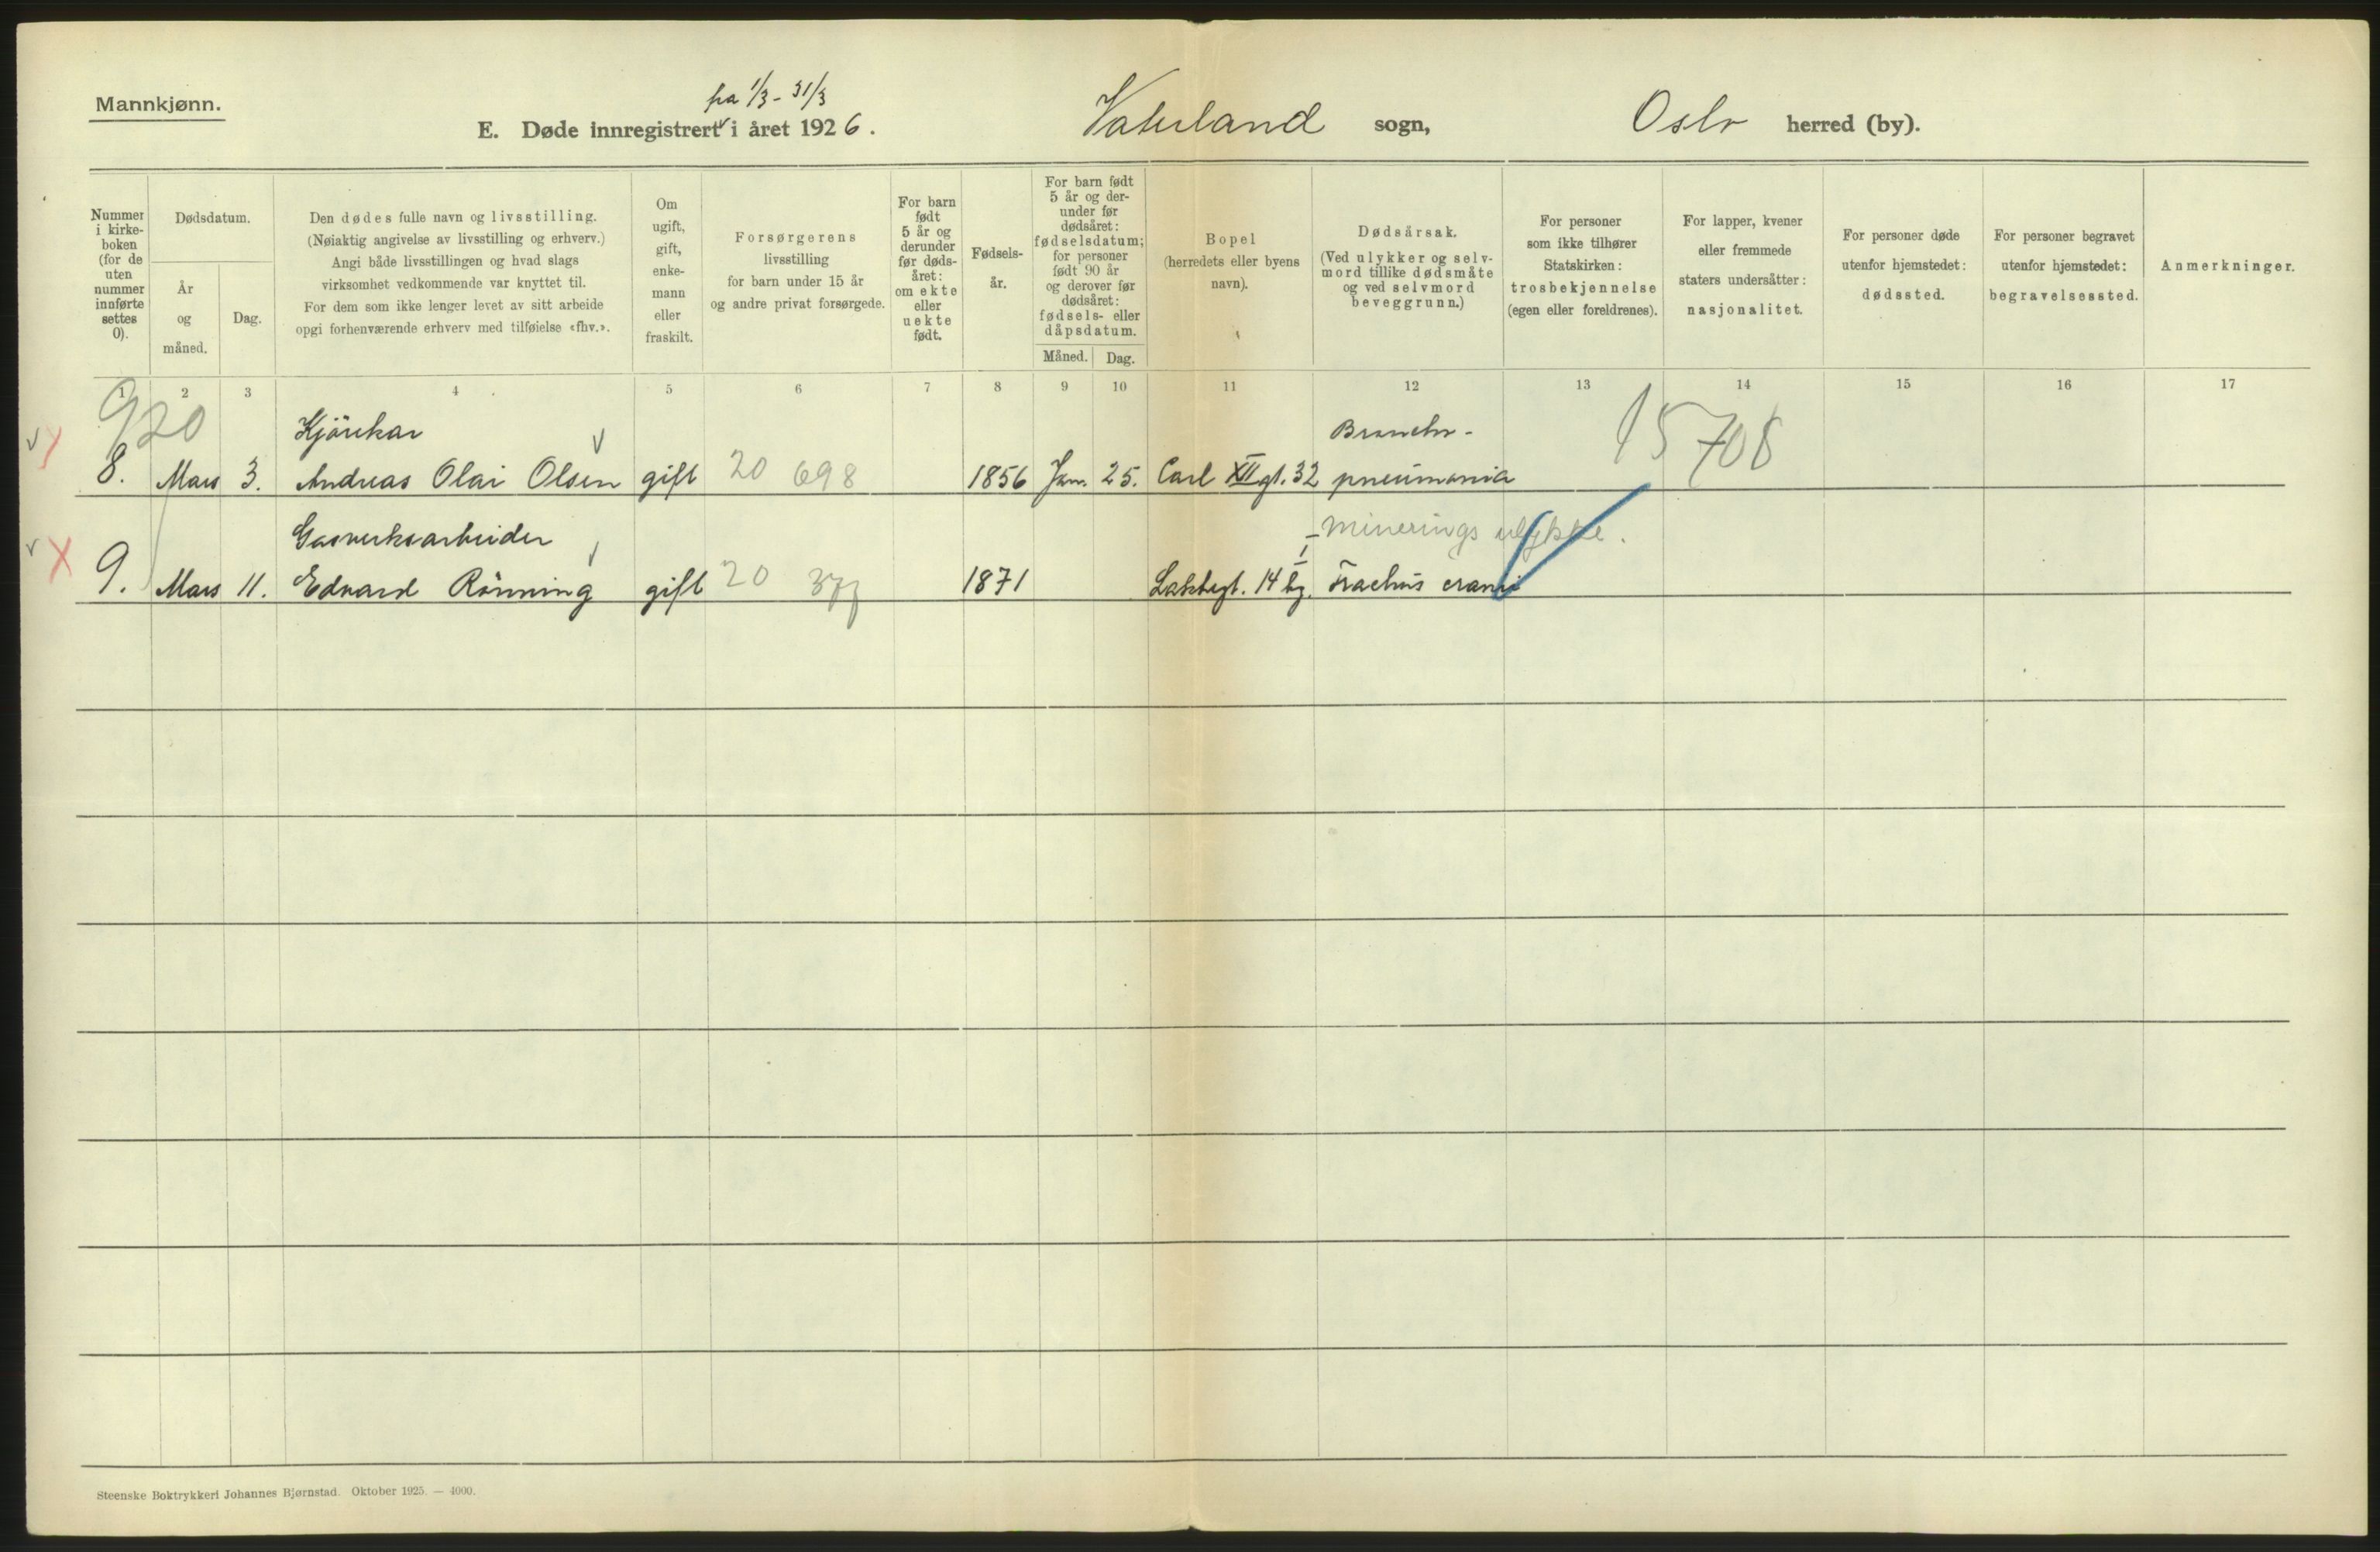 Mannkjønn.
fra 1/3 - 31/3
E. Døde innregistrert i året 1926. Vaterland sogn, Oslo herred (by).
Nummer i kirke- boken (for de uten nummer innførte settes 0).
Dødsdatum.
År og måned.
Dag.
Den dødes fulle navn og livsstilling.
(Nøiaktig angivelse av livsstilling og erhverv.)
Angi både livsstillingen og hvad slags
virksomhet vedkommende var knyttet til.
For dem som ikke lenger levet av sitt arbeide
opgi forhenværende erhverv med tilføielse «fhv.».
Om ugift, gift, enke- mann eller fraskilt.
Forsørgerens
livsstilling
for barn under 15 år
og andre privat forsørgede.
For barn født 5 år og derunder før døds- året: om ekte eller uekte født.
Fødsels- år.
For barn født 5 år og der- under før dødsåret: fødselsdatum; for personer født 90 år og derover før dødsåret: fødsels- eller dåpsdatum.
Måned. Dag.
Bopel
(herredets eller byens
navn).
Dødsårsak.
(Ved ulykker og selv-
mord tillike dødsmåte
og ved selvmord
beveggrunn.)
For personer
som ikke tilhører
Statskirken:
trosbekjennelse
(egen eller foreldrenes).
For lapper, kvener
eller fremmede
staters undersåtter:
nasjonalitet.
For personer døde
utenfor hjemstedet:
dødssted.
For personer begravet
utenfor hjemstedet:
begravelsessted.
Anmerkninger.
1 2 3 4 5 6 7 8 9 10 11 12 13 14 15 16 17
920 Kjörekar Broncho- 15 708
8. Mars 3. Andreas Olai Olsen gift 20 698 1856 Jan. 25. Carl XII gt. 32 pneumonia
Gasverksarbeider minerings ulykke.
9. Mars 11. Edvard Rönning gift 20 377 1871 Lakkegt. 14 bg. Fractus cranii
Steenske Boktrykkeri Johannes Bjørnstad. Oktober 1925. — 4000.